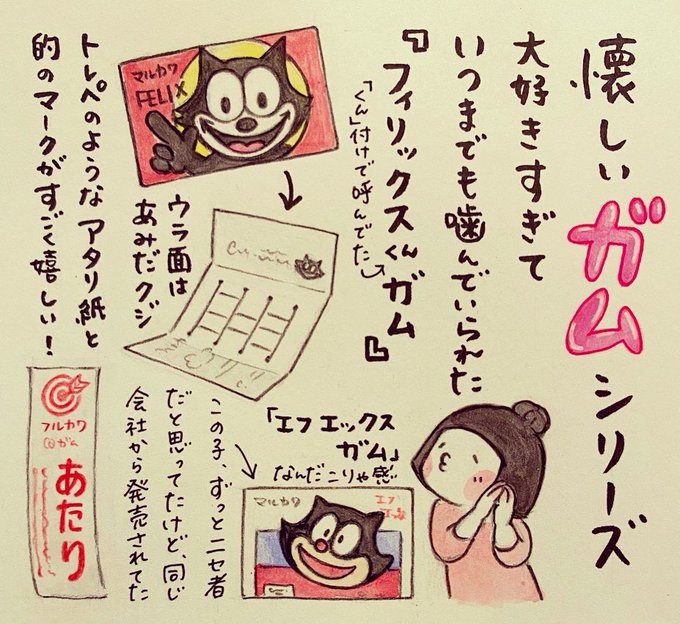 懐しいガムシリーズ
大好きすぎて
いつまでも噛んでいられた
『フィリックスくんガム』
「くん」付けで呼んでた
マルカワ
FELIX
ウラ面は
あみだクジ
トレペのようなアタリ紙と
的のマークがすごく嬉しい!
フルカワ
あたり
「エフエックス
ガム」
なんだこりゃ感
マルカワ
この子、ずっとニセ者
だと思ってたけど、同じ
会社から発売されてた